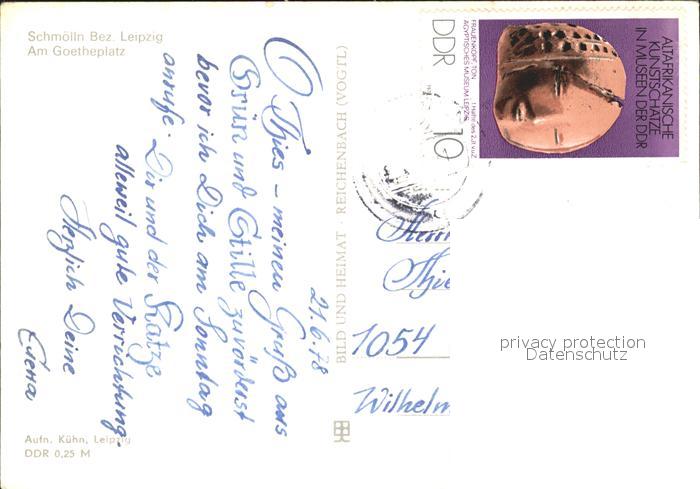 Schmölln Bez. Leipzig
Am Goetheplatz
21.6.78
O Thies – meinen Gruß aus
Grün und Stille zuvörderst
bevor ich Dich am Sonntag
anrufe. Dir und der Katze
alleweil gute Verrichtung.
Herzlich Deine
Aufn. Kühn, Leipzig
DDR 0,25 M
BILD UND HEIMAT · REICHENBACH (VOGTL)
ALTAFRIKANISCHE
KUNSTSCHÄTZE
IN MUSEEN DER DDR
FRAUENKOPF, TON
ÄGYPTISCHES MUSEUM LEIPZIG
DDR
10
Herrn
Thie
1054
Wilhelm
privacy protection
Datenschutz